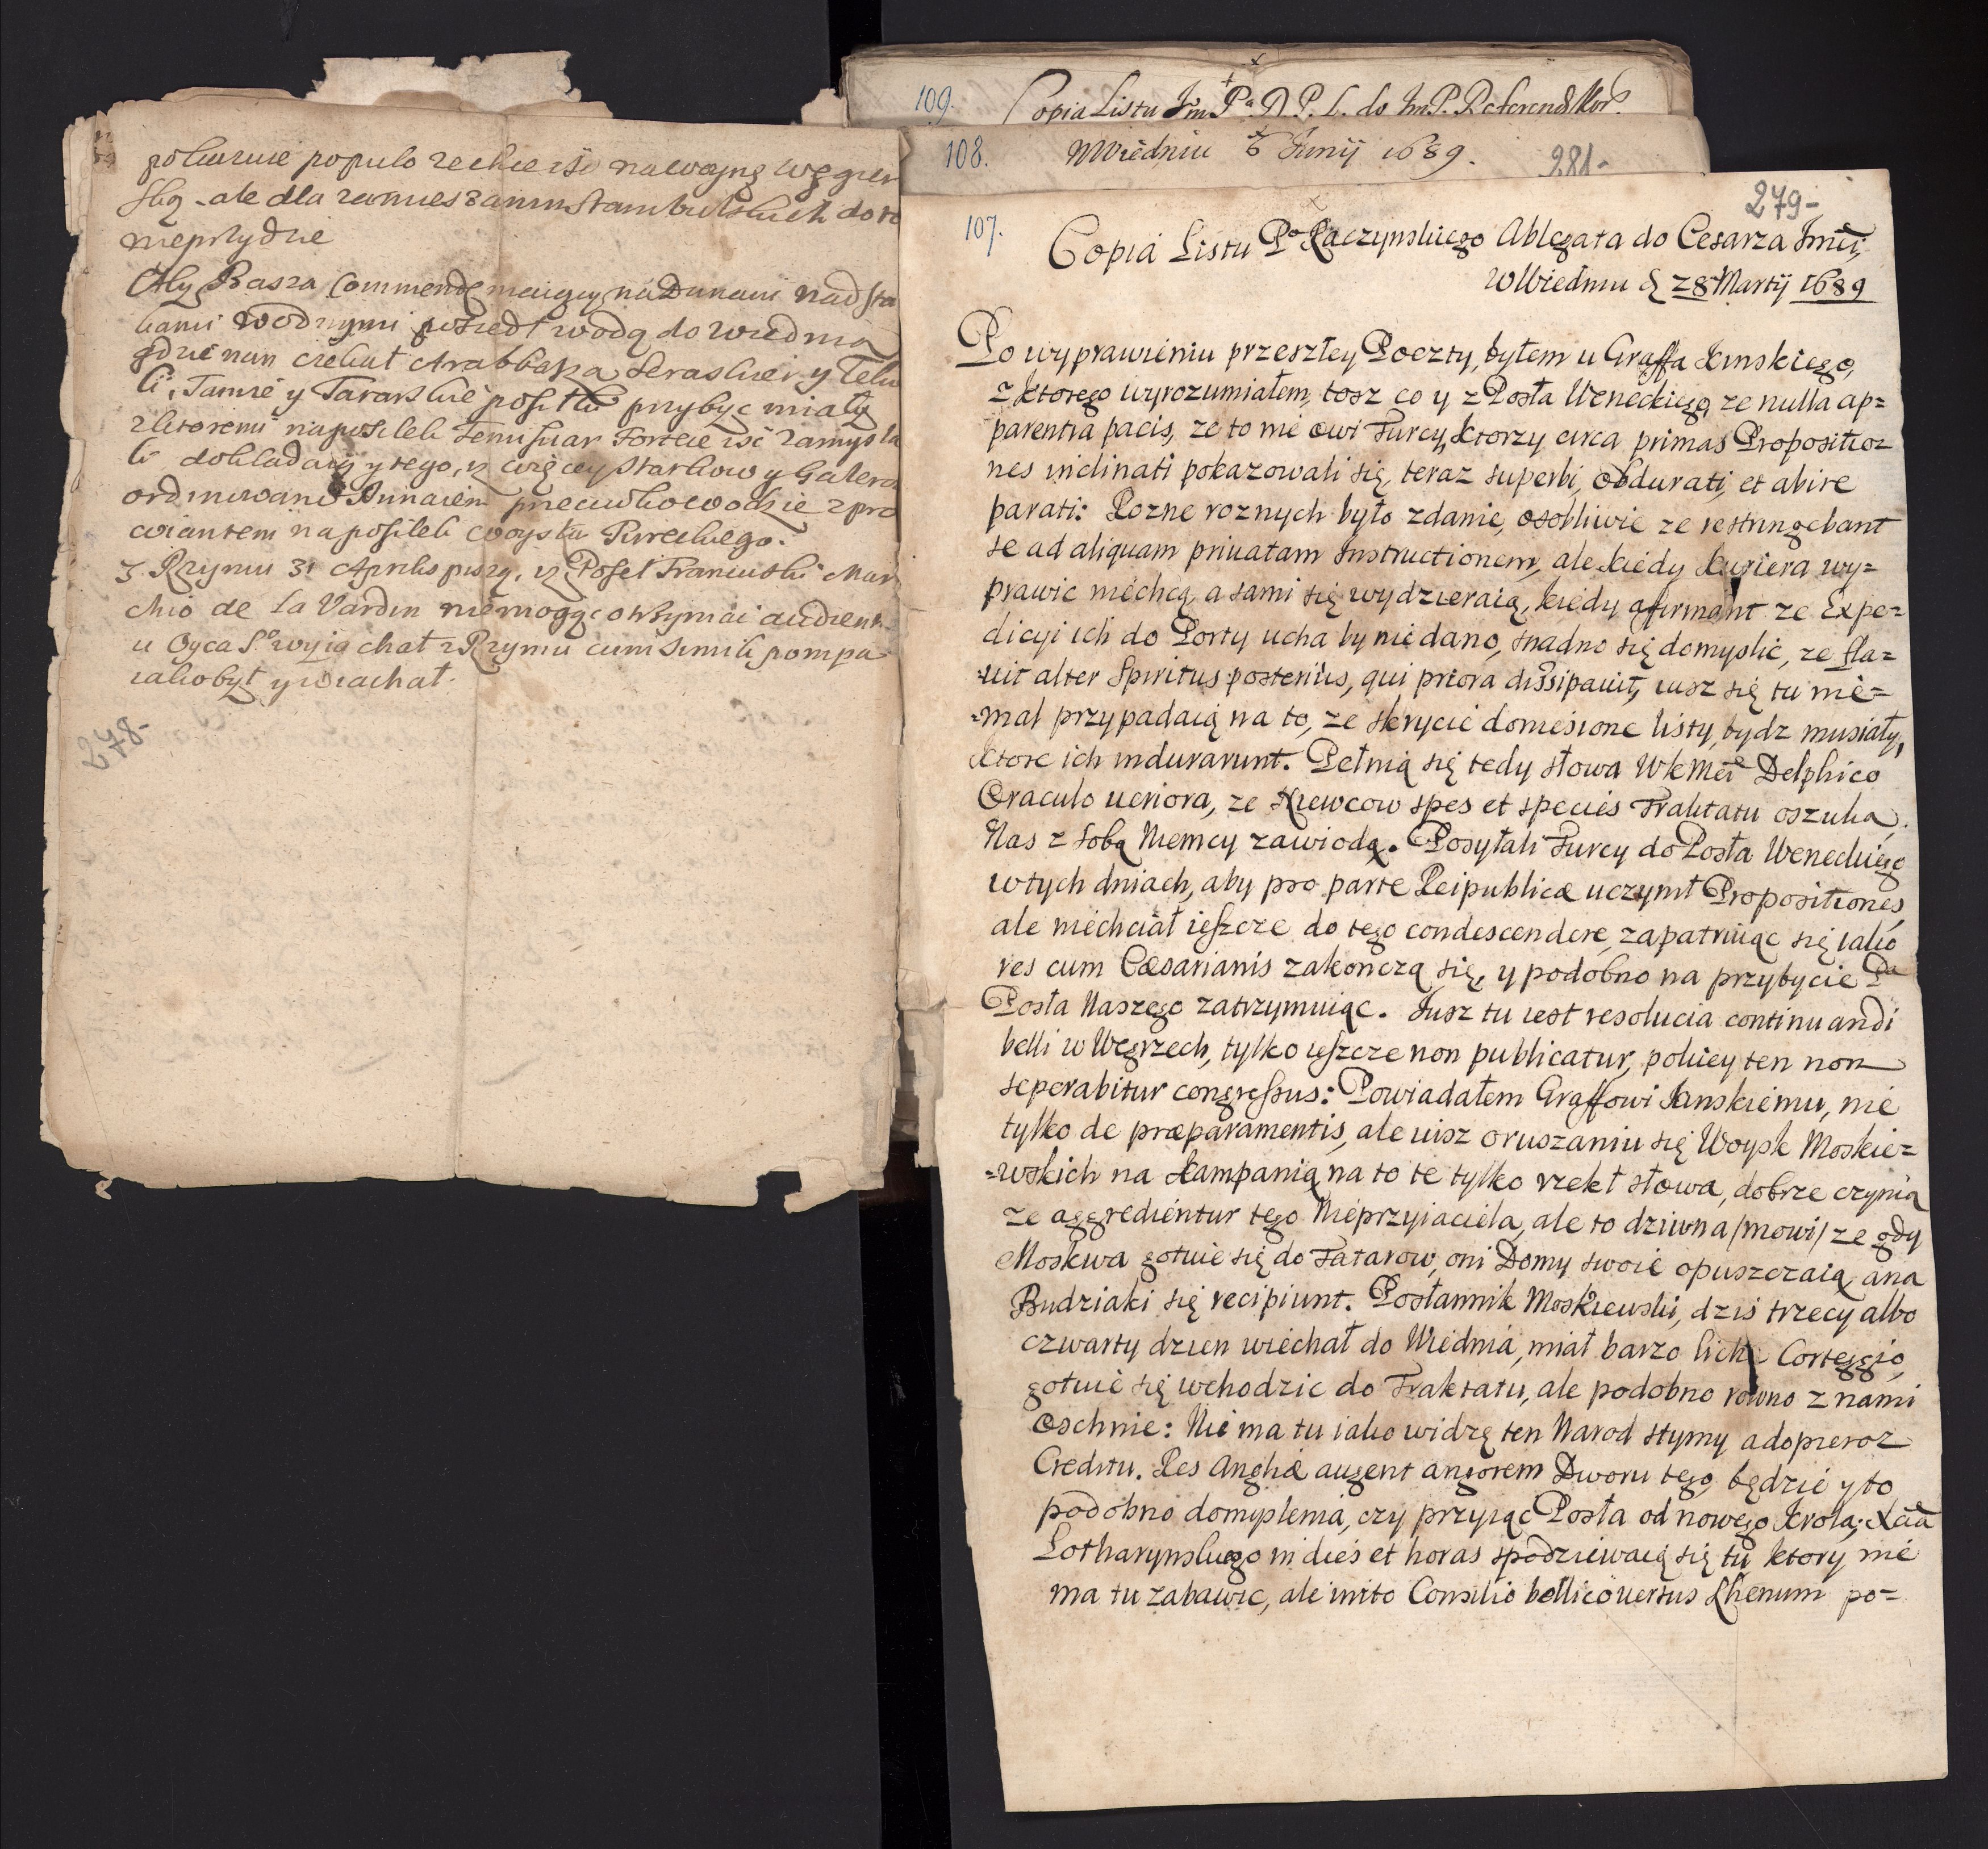 pokurcie populo zechce iść na woynę węgier
ską, ale dla zamieszania Stambulskich do te
nieprzydzie
Aly Basza Commendę maiący na Dunaiu nad sta
kami wodnymi poszedł wodą do Widnia
gdzie nan czekał Arabbasza Seraskier y Teke
li, Tamże y Tatarskie posiłki przybyc miały
z ktoremi na posiłek Temisuar Fortece isc zamysla
li dokładaią y tego, yz więcey Starkow y Galer
ordinowano Dunaiem przeciwko wodzie z pro
wiantem na posiłek woyska Tureckiego.
Z Rzymu 31 Aprilis piszą, yz Poseł Francuski Mar
chio de La Vardin niemogąc otrzymać audienti
u Oyca So wyiachał z Rzymu cum simili pompa
iako był y wiachał.
278-
109. Copia Listu Jm Pa D. P. L. do Jm P. Referend Kor.
108. w Wiedniu 6 Junij 1689.
281-
279-
107. Copia Listu Po Raczynskiego Ablegata do Cesarza Jmci,
w Wiedniu d 28 Martij 1689
Po wyprawieniu przeszłey Poczty, byłem u Graffa Kinskiego,
z ktorego wyrozumiałem, tosz co y z Posła Weneckiego, ze nulla ap=
parentia pacis, ze to nie owi Turcy, ktorzy circa primas Propositio=
nes inclinati pokazowali się, teraz superbi, obdurati, et abire
parati: Rozne roznych było zdanie, osobliwie ze restringebant
se ad aliquam priuatam Instructionem, ale kiedy Kuriera wy=
prawic niechcą, a sami się wydzieraią, kiedy afirmant ze Expe=
dicyi ich do Porty ucha by nie dano, snadno się domyslić, ze fla=
=uit alter Spiritus posterius, qui priora dissipauit, iusz się tu nie=
=mal przypadaią na to, ze skrycie doniesione listy, bydz musiały,
ktore ich indurarunt. Pełnią się tedy słowa WKMci Delphico
Oraculo ueriora, ze Niewcow spes et species Traktatu oszuka,
Nas z sobą Niemcy zawiodą. Posyłali Turcy do Posła Weneckiego
w tych dniach, aby pro parte Reipublicæ uczynił Propositiones,
ale niechciał ieszcze do tego condescendere, zapatruiąc się iako
res cum Cæsarianis zakonczą się, y podobno na przybycie Pa
Posła Naszego zatrzymuiąc. Jusz tu iest resolucia continuandi
belli w Węgrzech, tylko ieszcze non publicatur, pokiey ten non
seperabitur congressus: Powiadałem Graffowi Kinskiemu, nie
tylko de præparamentis, ale iusz o ruszaniu się Woysk Moskie=
=wskich na Kampanią, na to te tylko rzekł słowa, dobrze czynią
ze aggredientur tego Nieprzyiaciela, ale to dziwna /mowi/ ze gdy
Moskwa gotuie się do Tatarow, oni Domy swoie opuszczaią, a na
Budziaki się recipiunt. Posłannik Moskiewski, dzis trzecy albo
czwarty dzien wiechał do Wiednia, miał barzo lich Corteggio,
gotuie się wchodzic do Traktatu, ale podobno rowno z nami
oschnie: Nie ma tu iako widzę ten Narod stymy a dopieroz
Creditu. Res Angliæ augent angorem Dworu tego, będzie y to
podobno do myslenia, czy przyiąc Posła od nowego Krola; Xcia
Lotharynskiego in dies et horas spodziewaią się tu, ktory nie
ma tu zabawic, ale inito Consilio bellico uersus Rhenum po=